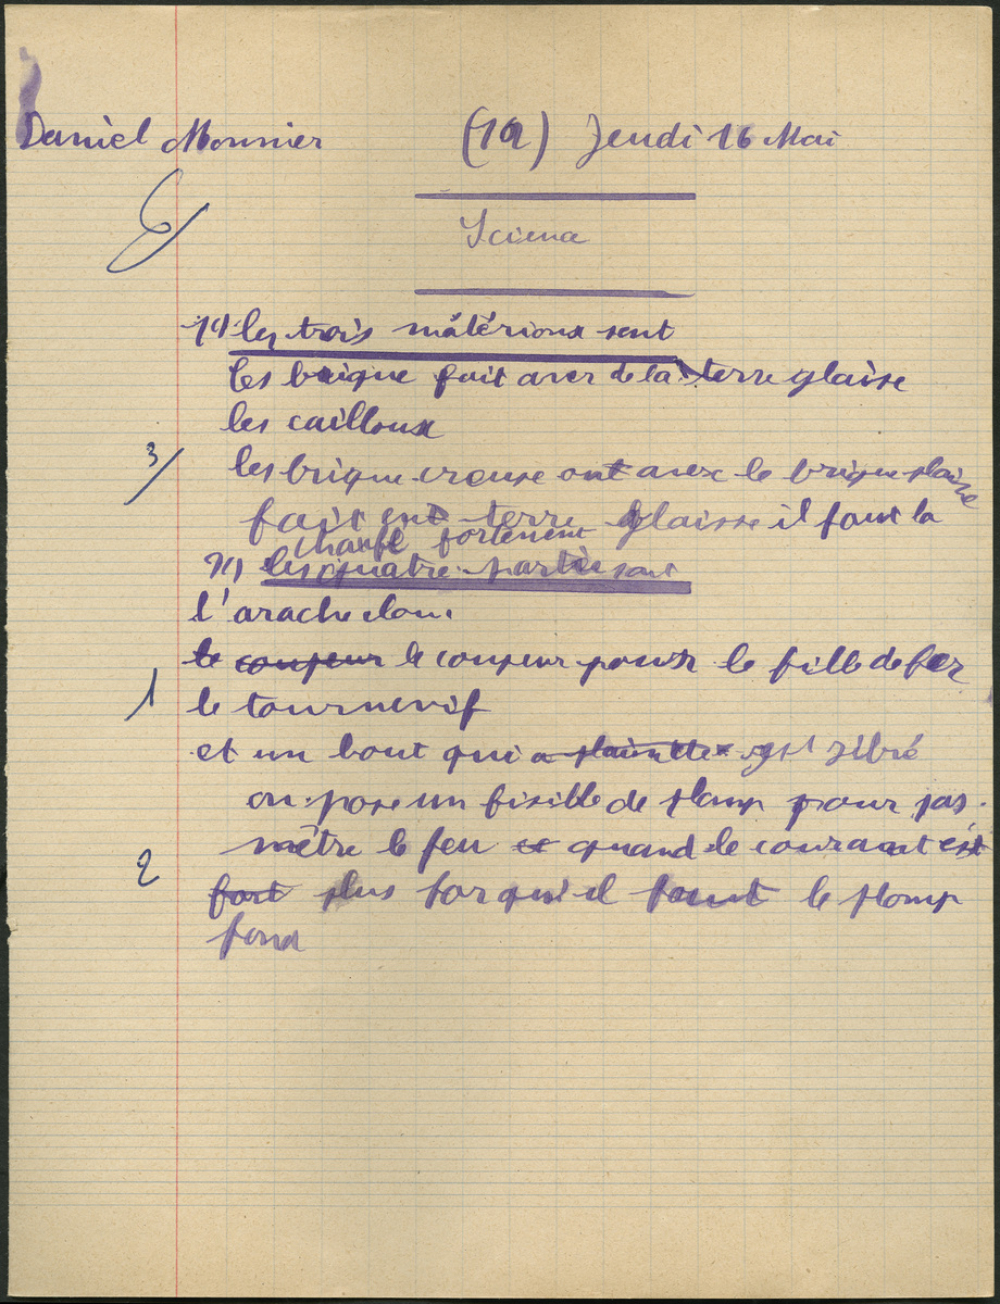 Daniel Monnier (19) Jeudi 16 Mai
6
Science
1) les trois matérioux sont
les brique fait avec de la terre glaise
les cailloux
3 les brique creuse ont avec le brique plaine
fait en terre glaisse il faut la
chaufe fortement
2) les quatre partie sont
l'arache clou
le coupeur le coupeur pour le fille de fer
1 le tournevif
et un bout qui a est
on pose un fisible de plomp pour pas
mètre le feu quand le courant est
2 fort plus for qu'il faut le plomp
fond